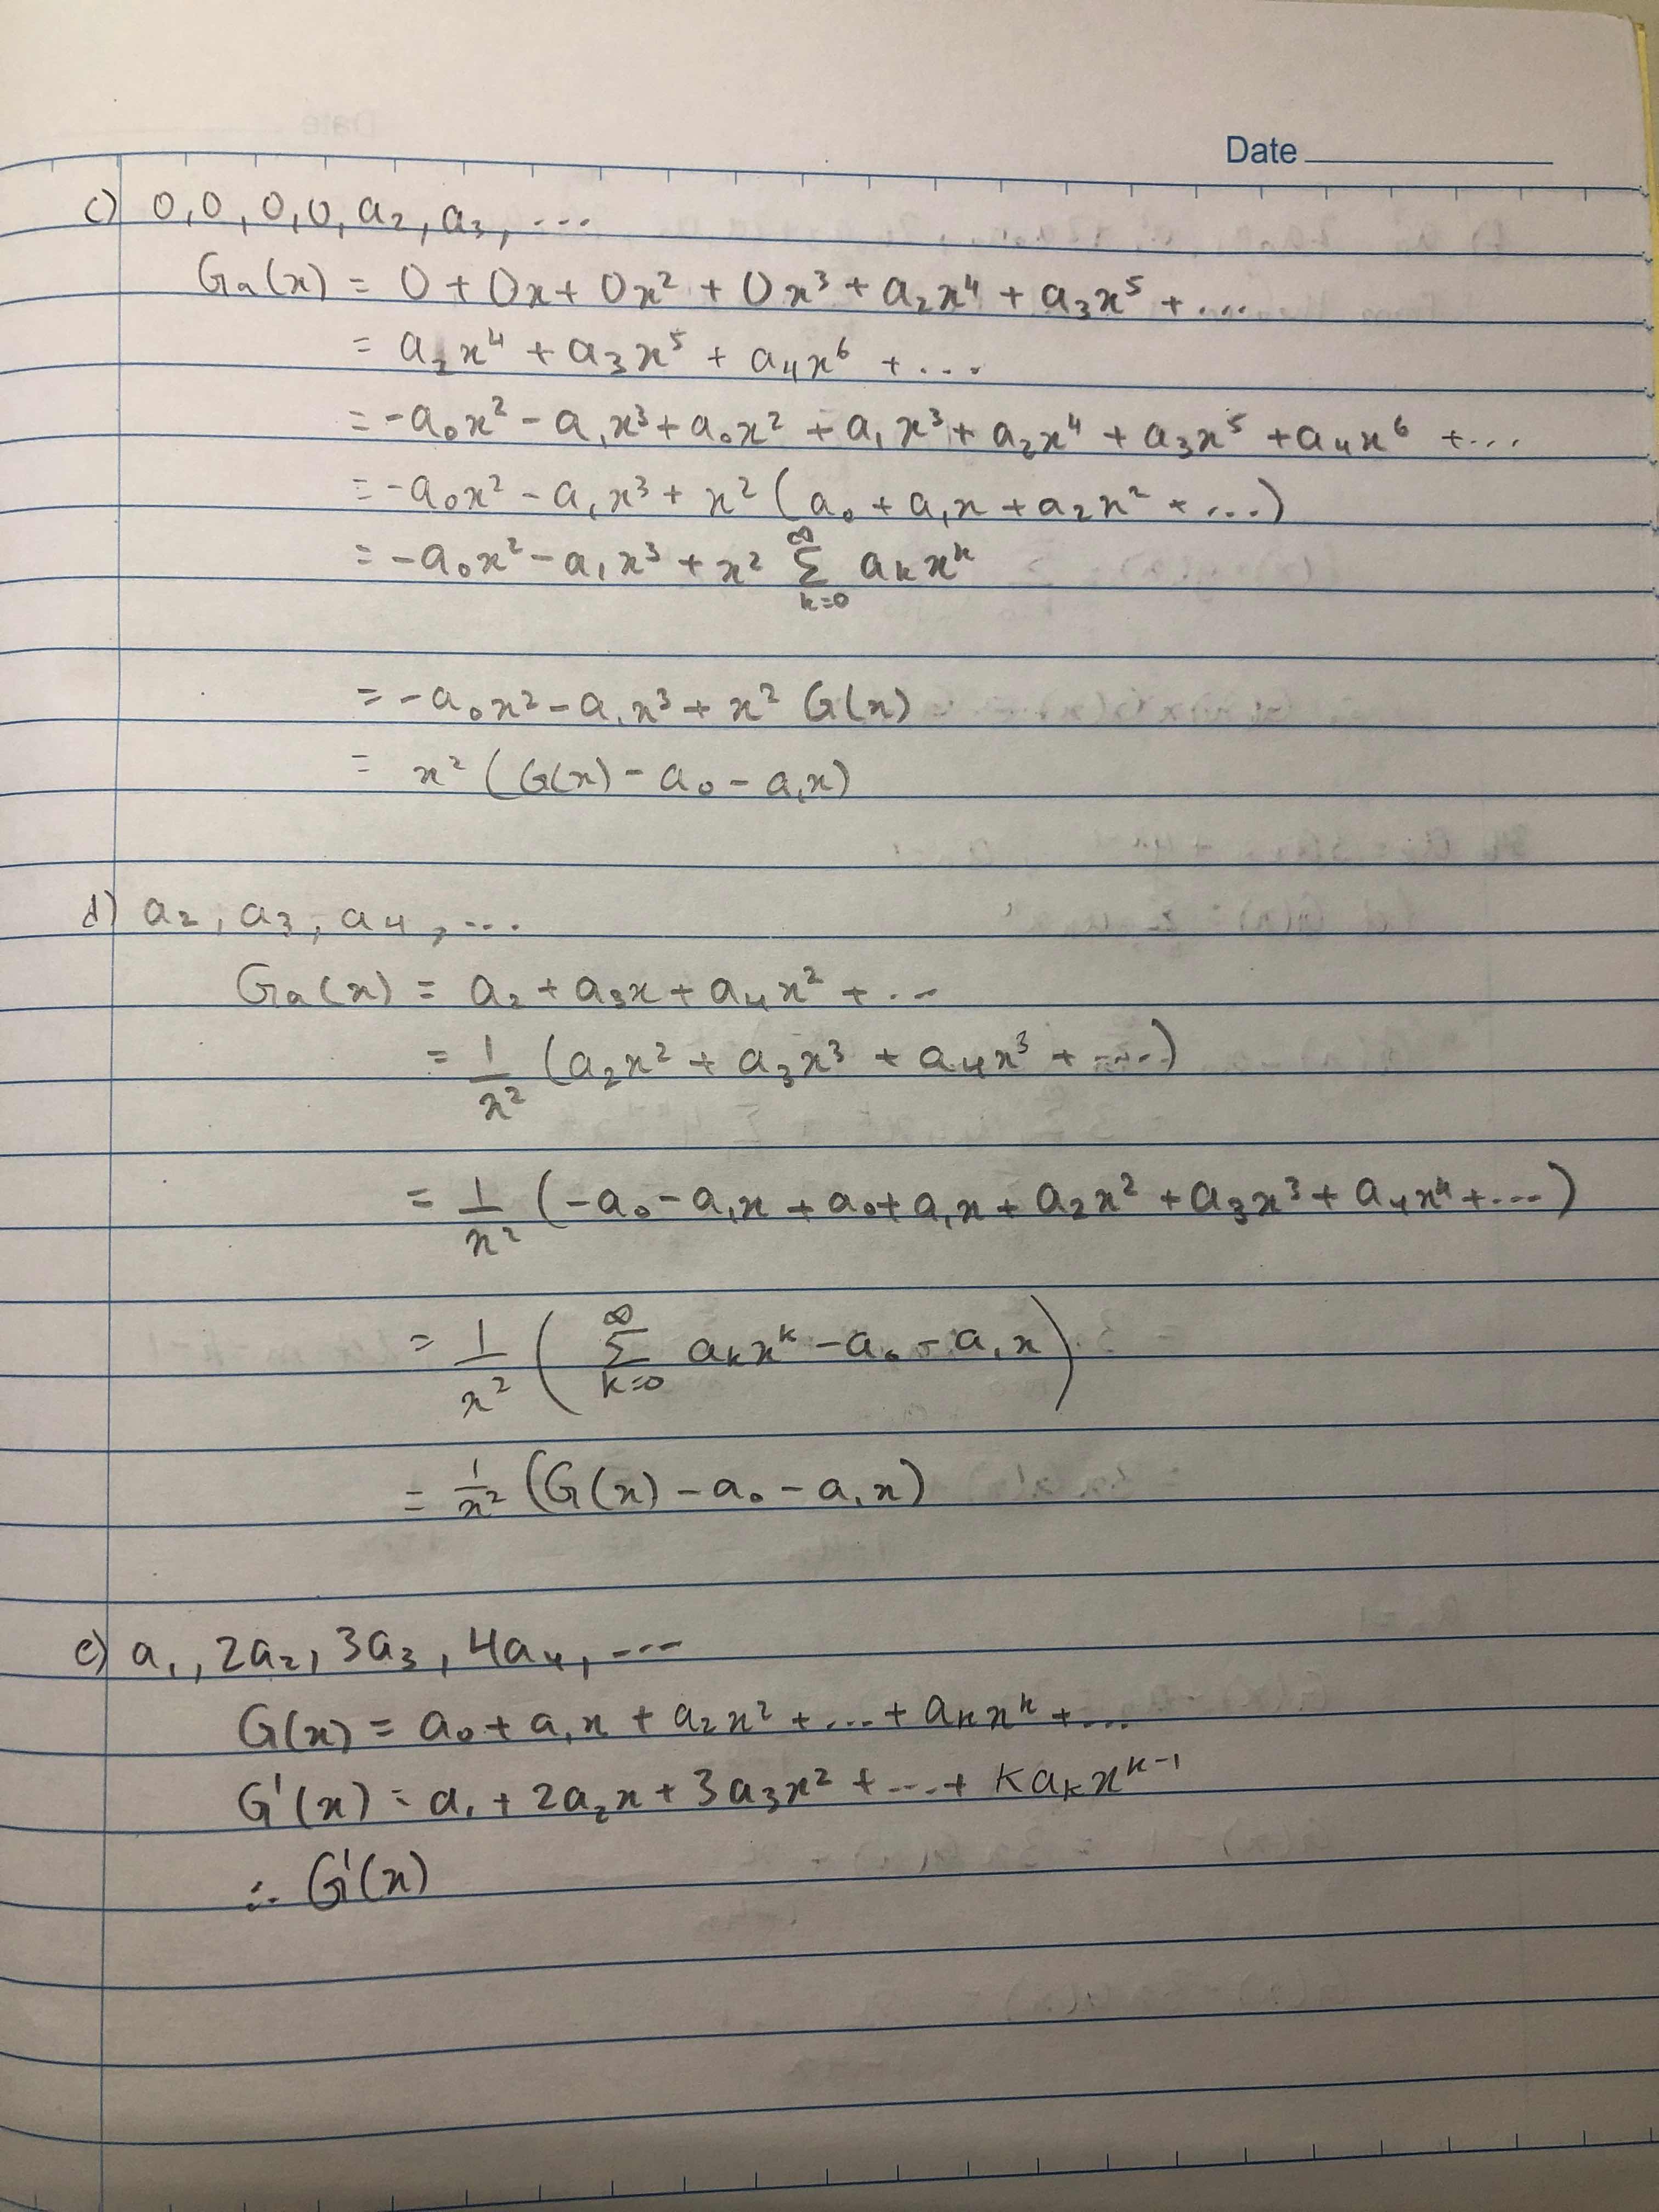 Date
c) 0, 0, 0, 0, a₂, a₃, ...
Gₐ(x) = 0 + 0x + 0x² + 0x³ + a₂x⁴ + a₃x⁵ + ....
= a₂x⁴ + a₃x⁵ + a₄x⁶ + ...
= -a₀x² - a₁x³ + a₀x² + a₁x³ + a₂x⁴ + a₃x⁵ + a₄x⁶ + ...
= -a₀x² - a₁x³ + x² (a₀ + a₁x + a₂x² + ...)
= -a₀x² - a₁x³ + x² ∑_{k=0}^{∞} aₖxᵏ
= -a₀x² - a₁x³ + x² G(x)
= x² (G(x) - a₀ - a₁x)
d) a₂, a₃, a₄, ...
Gₐ(x) = a₂ + a₃x + a₄x² + ...
= 1/x² (a₂x² + a₃x³ + a₄x³ + ....)
= 1/x² (-a₀ - a₁x + a₀ + a₁x + a₂x² + a₃x³ + a₄x⁴ + ...)
= 1/x² (∑_{k=0}^{∞} aₖxᵏ - a₀ - a₁x)
= 1/x² (G(x) - a₀ - a₁x)
e) a₁, 2a₂, 3a₃, 4a₄, ...
G(x) = a₀ + a₁x + a₂x² + ... + aₖxᵏ + ...
G'(x) = a₁ + 2a₂x + 3a₃x² + ... + kaₖxᵏ⁻¹
∴ G'(x)